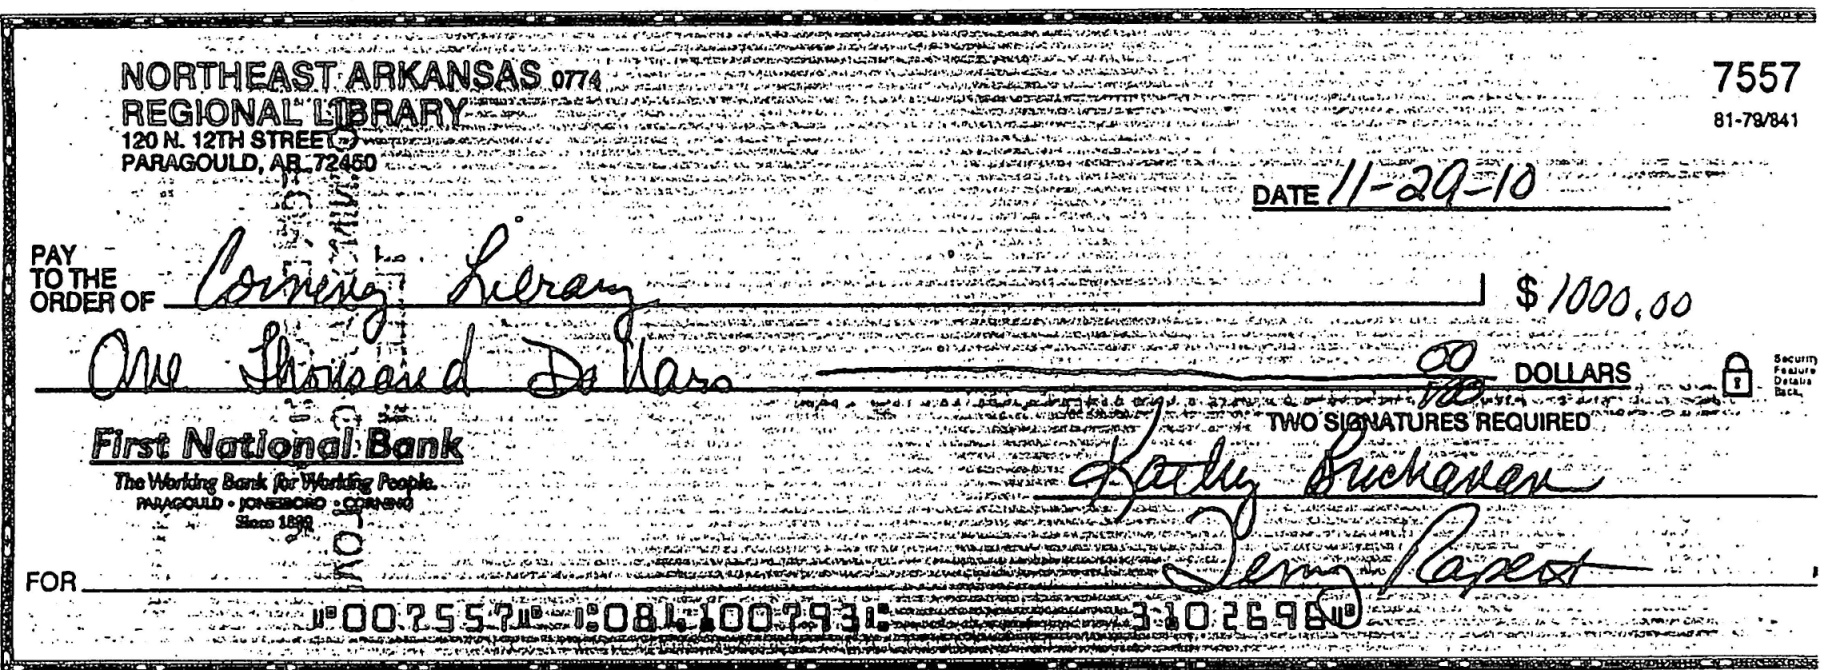 NORTHEAST ARKANSAS 0774
REGIONAL LIBRARY
120 N. 12TH STREET
PARAGOULD, AR 72450
7557
81-79/841
DATE 11-29-10
PAY
TO THE
ORDER OF Corning Library $ 1000.00
One Thousand Dollars 00/100 DOLLARS
Security
Feature
Details
Back.
TWO SIGNATURES REQUIRED
First National Bank
The Working Bank for Working People.
PARAGOULD • JONESBORO • CORNING
Since 1889
Kathy Buchanan
Terry Rapert
FOR
⑈007557⑈ ⑆084100793⑆ 3102696⑈